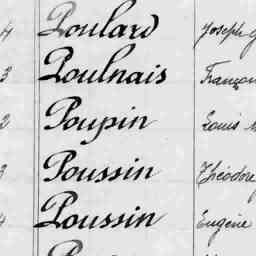 4 Poulard Joseph
3 Poulnais
2 Poupin Louis
3 Poussin Théodore
4 Poussin Eugène